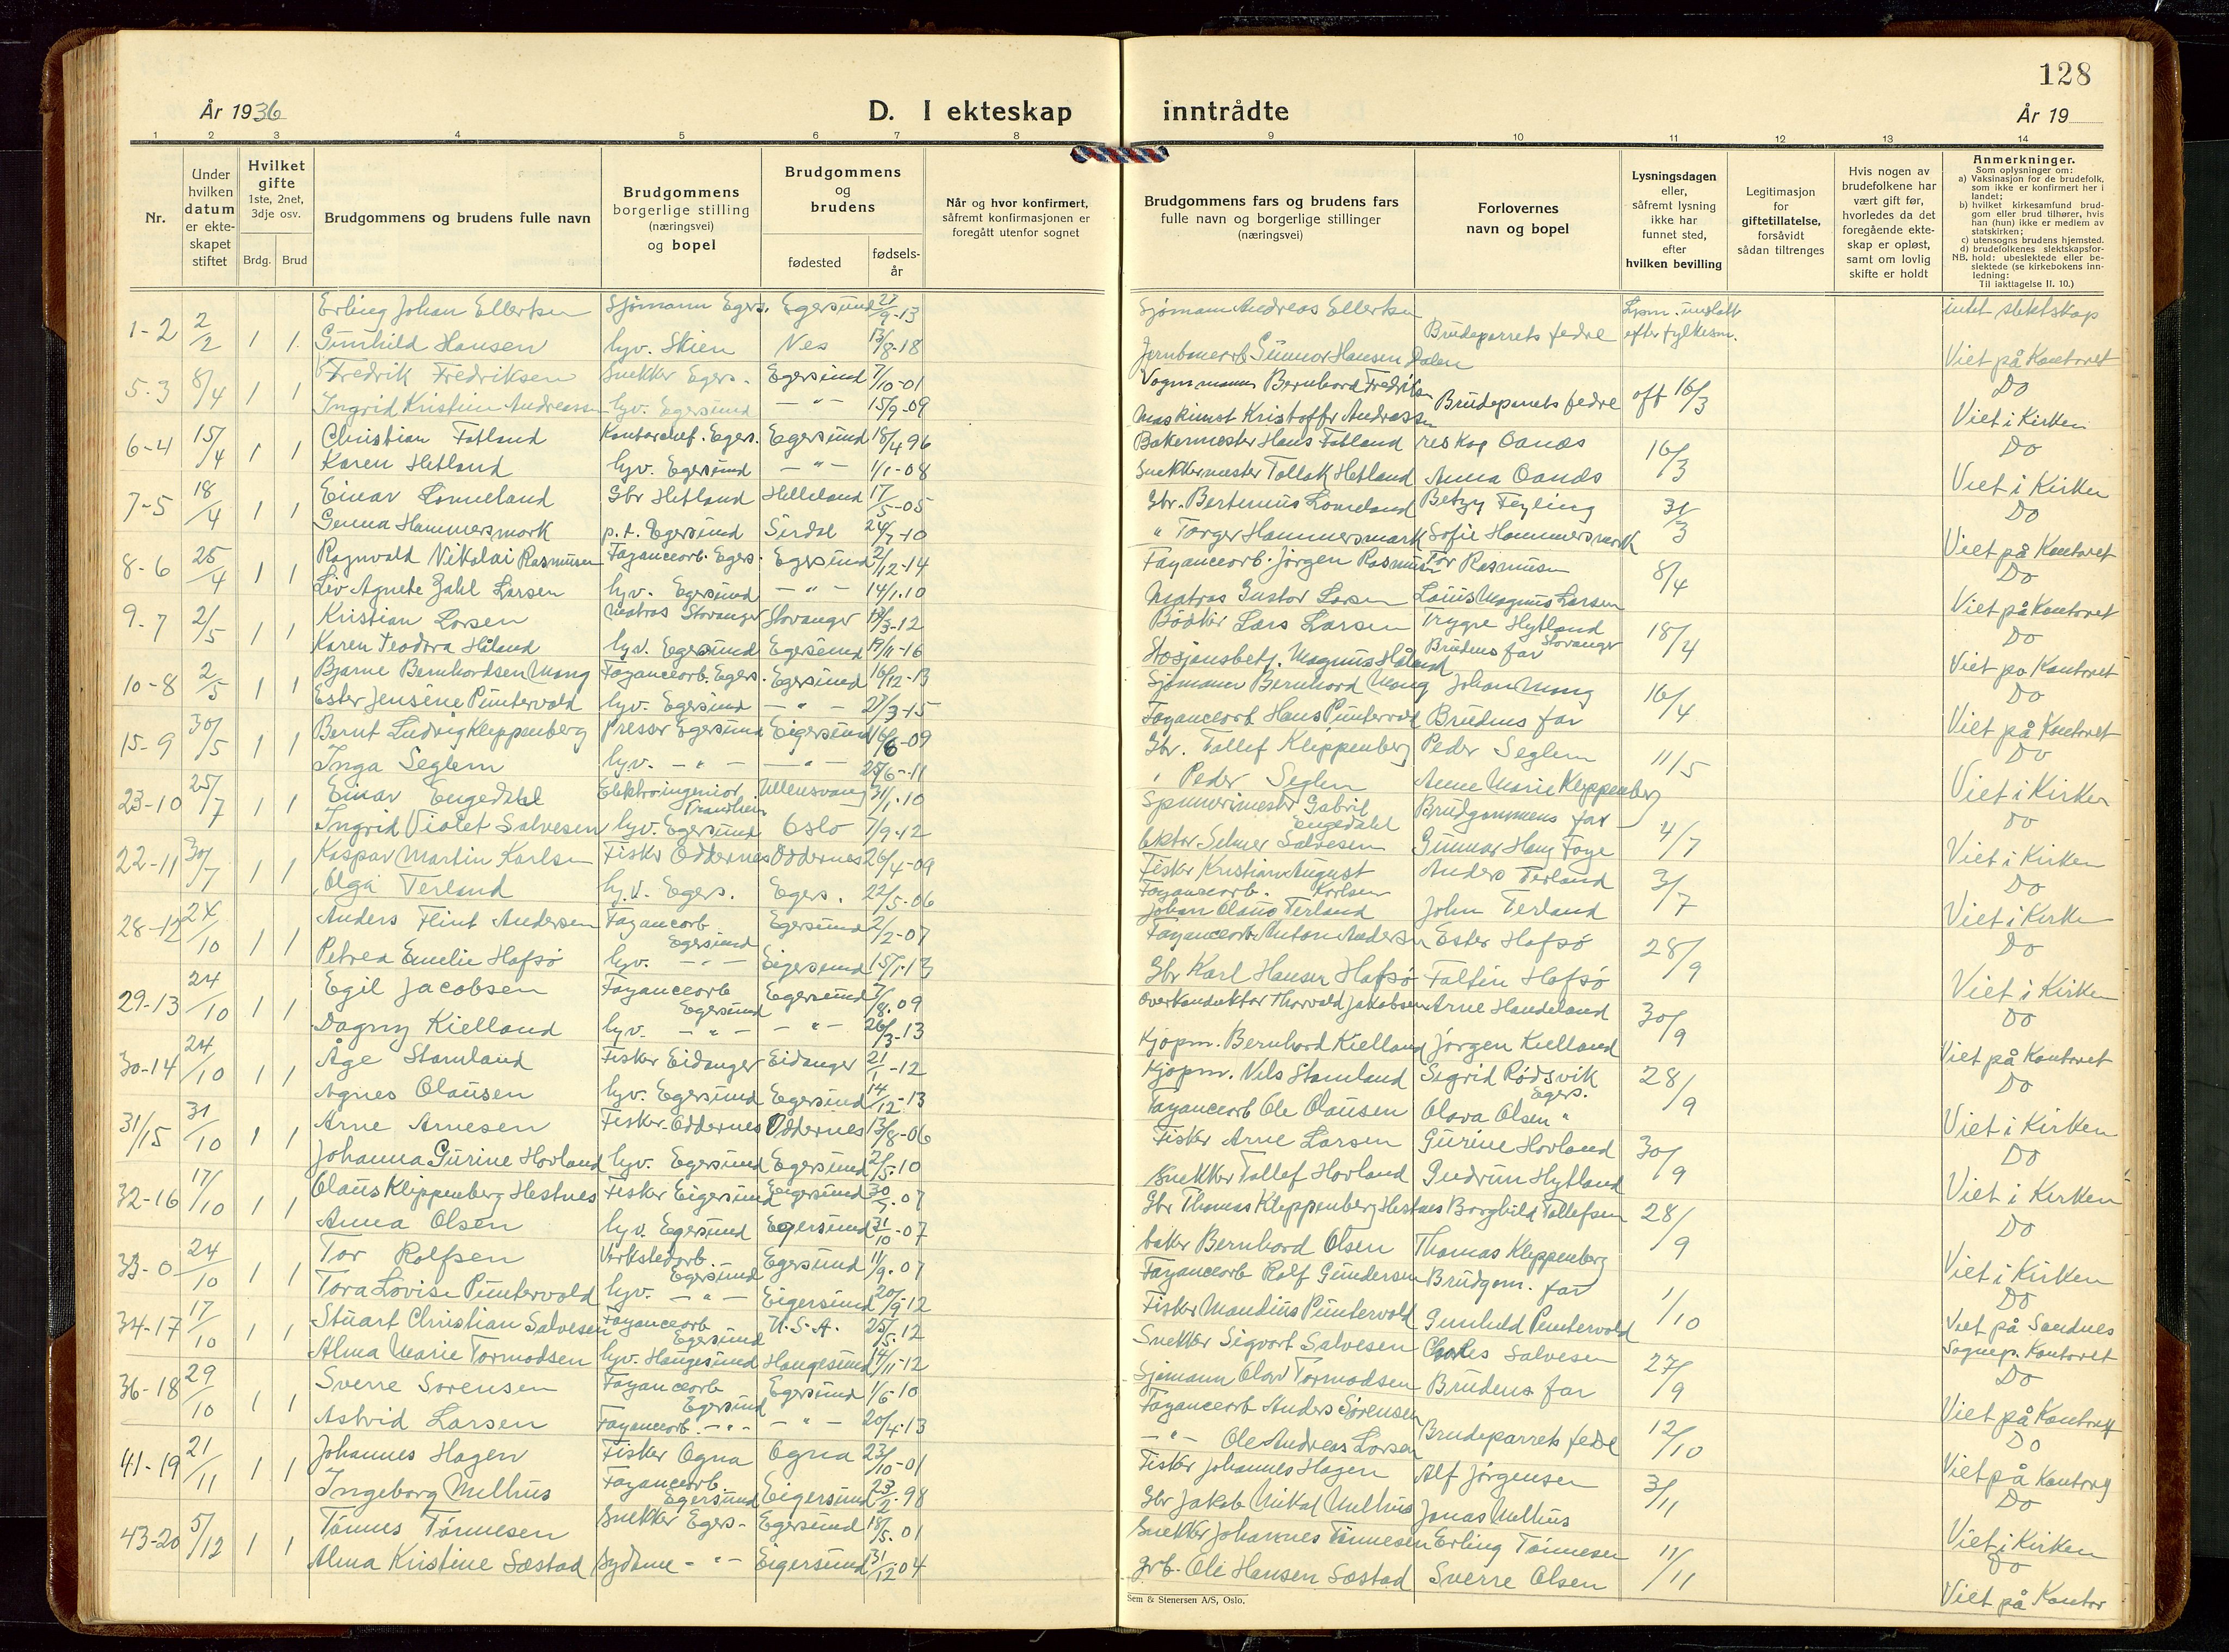 128
År 1936
D. I ekteskap
inntrådte
År 19
1 2 3 4 5 6 7 8 9 10 11 12 13 14
Nr.
Under hvilken datum er ekteskapet stiftet
Hvilket gifte 1ste, 2net, 3dje osv.
Brdg. Brud
Brudgommens og brudens fulle navn
Brudgommens borgerlige stilling (næringsvei) og bopel
Brudgommens og brudens
fødested
fødselsår
Når og hvor konfirmert, såfremt konfirmasjonen er foregått utenfor sognet
Brudgommens fars og brudens fars fulle navn og borgerlige stillinger (næringsvei)
Forlovernes navn og bopel
Lysningsdagen eller, såfremt lysning ikke har funnet sted, efter hvilken bevilling
Legitimasjon for giftetillatelse, forsåvidt sådan tiltrenges
Hvis nogen av brudefolkene har vært gift før, hvorledes da det foregående ekteskap er opløst, samt om lovlig skifte er holdt
Anmerkninger.
Som oplysning om:
a) Vaksinasjon for de brudefolk, som ikke er konfirmert her i landet;
b) hvilket kirkesamfund brudgom eller brud tilhører, hvis han (hun) ikke er medlem av statskirken;
c) utensogns brudens hjemsted.
d) brudefolkenes slektskapsforhold: ubeslektede eller beslektede (se kirkebokens innledning:
NB.
Til iakttagelse II. 10.)
1-2 2/2 1 1 Erling Johan Ellertsen Sjømann Egers. Egersund 27/9-13 Sjømann Andreas Ellertsen Brudeparrets fedre intet slektskap
Gunhild Hansen hyv. Skien Nes 13/8-18 Gunnar Hansen Dalen efter fylkesm. Viet på Kontoret
5-3 8/4 1 1 Fredrik Fredriksen Snekker Egers. Egersund 7/10-01 Bernhard Fredriksen Brudeparrets fedre 16/3 Do
Ingrid Kristine Andreassen hyv. Egersund - " - 15/9-09 Maskinist Kristoffer Andreassen Viet i Kirken
6-4 15/4 1 1 Christian Fotland Kontorchef. Egers. Egersund 18/4 96 Bakermester Hans Fotland res kap Oands 16/3 Do
Karen Hetland hyv. Egersund - " - 1/1-08 Snekkermester Tollak Hetland Anna Oands Viet i Kirken
7-5 18/4 1 1 Einar Lomeland Gbr Hetland Helleland 17/5-05 Gbr. Lomeland Betzy Feyling 31/3 Do
Genna Hammersmark p.t. Egersund Sirdal 24/7-10 " Torger Hammersmark Sofie Hammersmark Viet på Kontoret
8-6 25/4 1 1 Ragnvald Nikolai Rasmussen Fayancearb. Egers. Egersund 2/12-14 Fayancearb. Jørgen Rasmussen Tor Rasmussen 8/4 Do
Liv Agnete Zahl Larsen hyv. Egersund - " - 14/1.10 Matros Gustav Larsen Louis Magnus Larsen Viet på Kontoret
9-7 2/5 1 1 Kristian Larsen Matros Stavanger Stavanger 13/3-12 Bødker Lars Larsen Trygve Hytland Stavanger 18/4 Do
Karen Teodora Håland hyv. Egersund Egersund 19/11-16 Magnus Håland Brudens far Viet på Kontoret
10-8 2/5 1 1 Bjarne Bernhardsen Mong Fayancearb. Egers. Egersund 16/12-13 Sjømann Bernhard Mong Johan Mong 16/4 Do
Ester Jensine Puntervold hyv. Egersund - " - 27/3-15 Fayancearb Hans Puntervold Brudens far Viet på Kontoret
15-9 30/5 1 1 Bernt Ludvig Kleppenberg Presser Egersund Eigersund 16/6-09 Gbr. Tollef Kleppenberg Peder Seglem 11/5 Do
Inga Seglem hyv. - " - - " - 25/6-11 " Peder Seglem Anne Marie Kleppenberg Viet i Kirken
23-10 25/7 1 1 Einar Engedahl Elektroingeniør Trondheim Ullensvang 31/1.10 Spinnerimester Gabriel Engedahl Brudgommens far 4/7 Do
Ingrid Violet Salvesen hyv. Egersund Oslo 7/9-12 Selmer Salvesen Gunnar Haug Faye Viet i Kirken
22-11 30/7 1 1 Kaspar Martin Karlsen Fisker Oddernes Oddernes 26/4-09 Fisker Kristian August Karlsen Anders Terland 3/7 Do
Olga Terland hyv. Egers. Egers. 22/5-06 Fayancearb. Johan Olaus Terland John Terland Viet i Kirken
28-12 24/10 1 1 Anders Flint Andersen Fayancearb Egersund Egersund 2/2-07 Fayancearb Anton Andersen Ester Hafsø 28/9 Do
Petrea Emelie Hafsø hyv. - " - Eigersund 15/1.13 Gbr Karl Hansen Hafsø Faltin Hafsø Viet i Kirken
29-13 24/10 1 1 Egil Jacobsen Fayancearb Egersund Egersund 7/8.09 Overkonduktør Thorvald Jakobsen Arne Handeland 30/9 Do
Dagny Kielland hyv. - " - - " - 26/3-13 Kjøpm. Bernhard Kielland Jørgen Kielland Viet på Kontoret
30-14 24/10 1 1 Åge Stamland Fisker Eidanger Eidanger 21/1-12 Kjøpm. Nils Stamland Sigrid Rødsvik Egers. 28/9 Do
Agnes Olausen hyv. Egersund Egersund 14/12-13 Fayancearb Ole Olausen Olava Olsen " Viet i Kirken
31/15 31/10 1 1 Arne Arnesen Fisker. Oddernes Oddernes 13/8-06 Fisker Arne Larsen Gurine Hovland 30/9 Do
Johanna Gurine Hovland hyv. Egersund Egersund 2/5.10 Snekker Tollef Hovland Gudrun Hytland Viet i Kirken
32-16 17/10 1 1 Olaus Kleppenberg Hestnes Fisker Eigersund Eigersund 30/7-07 Gbr Thomas Kleppenberg Hestnes Borghild Tollefsen 28/9 Do
Anna Olsen hyv. Egersund Egersund 31/10-07 baker Bernhard Olsen Thomas Kleppenberg Viet i Kirken
33-0 24/10 1 1 Tor Rolfsen Verkstedarb. Egersund Egersund 11/9.07 Fayancearb Rolf Gundersen Brudgom. far 1/10 Do
Tora Lovise Puntervold hyv. - " - Eigersund 20/9-12 Fisker Mandius Puntervold Gunhild Puntervold Viet på Sandnes
34-17 17/10 1 1 Stuart Christian Salvesen Fayancearb Egersund U.S.A. 25/5.12 Snekker Sigvart Salvesen Charles Salvesen 27/9 Sognep. Kontoret
Alma Marie Tormodsen hyv. Haugesund Haugesund 14/11-12 Sjømann Olav Tormodsen Brudens far Do
36-18 29/10 1 1 Sverre Sørensen Fayancearb Egersund Egersund 1/6-10 Fayancearb Anders Sørensen Brudeparrets fedre 12/10 Viet på Kontoret
Astrid Larsen Fayancearb. - " - - " - 20/4.13 - " - Ole Andreas Larsen Do
41-19 21/11 1 1 Johannes Hagen Fisker Ogna Ogna 23/10-01 Fisker Johannes Hagen Alf Jørgensen 3/11 Viet på Kontoret
Ingeborg Melhus Fayancearb. Egersund Eigersund 23/2-98 Gbr Jakob Mikal Melhus Jonas Melhus Do
43-20 5/12 1 1 Tønnes Tønnesen Snekker Egers. Egersund 18/5.01 Snekker Johannes Tønnesen Erling Tønnesen 11/11 Viet i Kirken
Alma Kristine Sæstad Sydame - " - Eigersund 31/12 04 Ole Hansen Sæstad Sverre Olsen Do
Viet på Kontor
Sem & Stenersen A/S, Oslo.